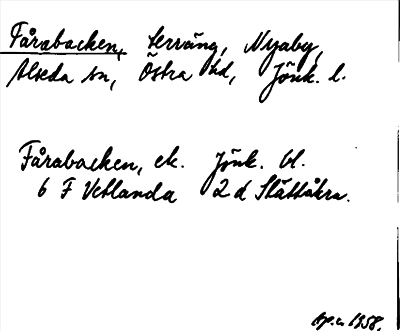 Fårabacken, terräng, Nyaby,
Alseda sn, Östra hd, Jönk. l.
Fårabacken, ek. Jönk. bl.
6 F Vetlanda 2 d Slättåkra.
Op. c. 1958.